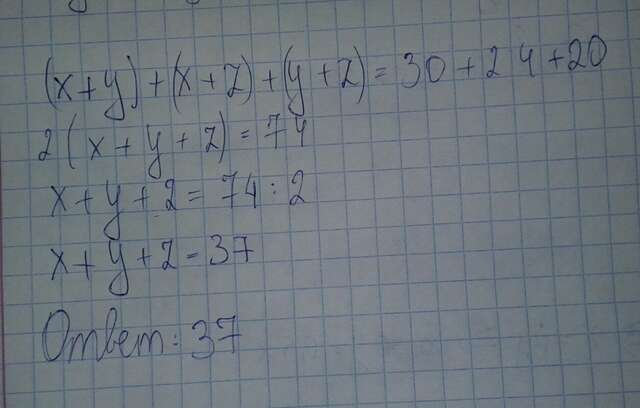 (x+y)+(x+z)+(y+z)=30+24+20
2(x+y+z)=74
x+y+z=74:2
x+y+z=37
Ответ: 37